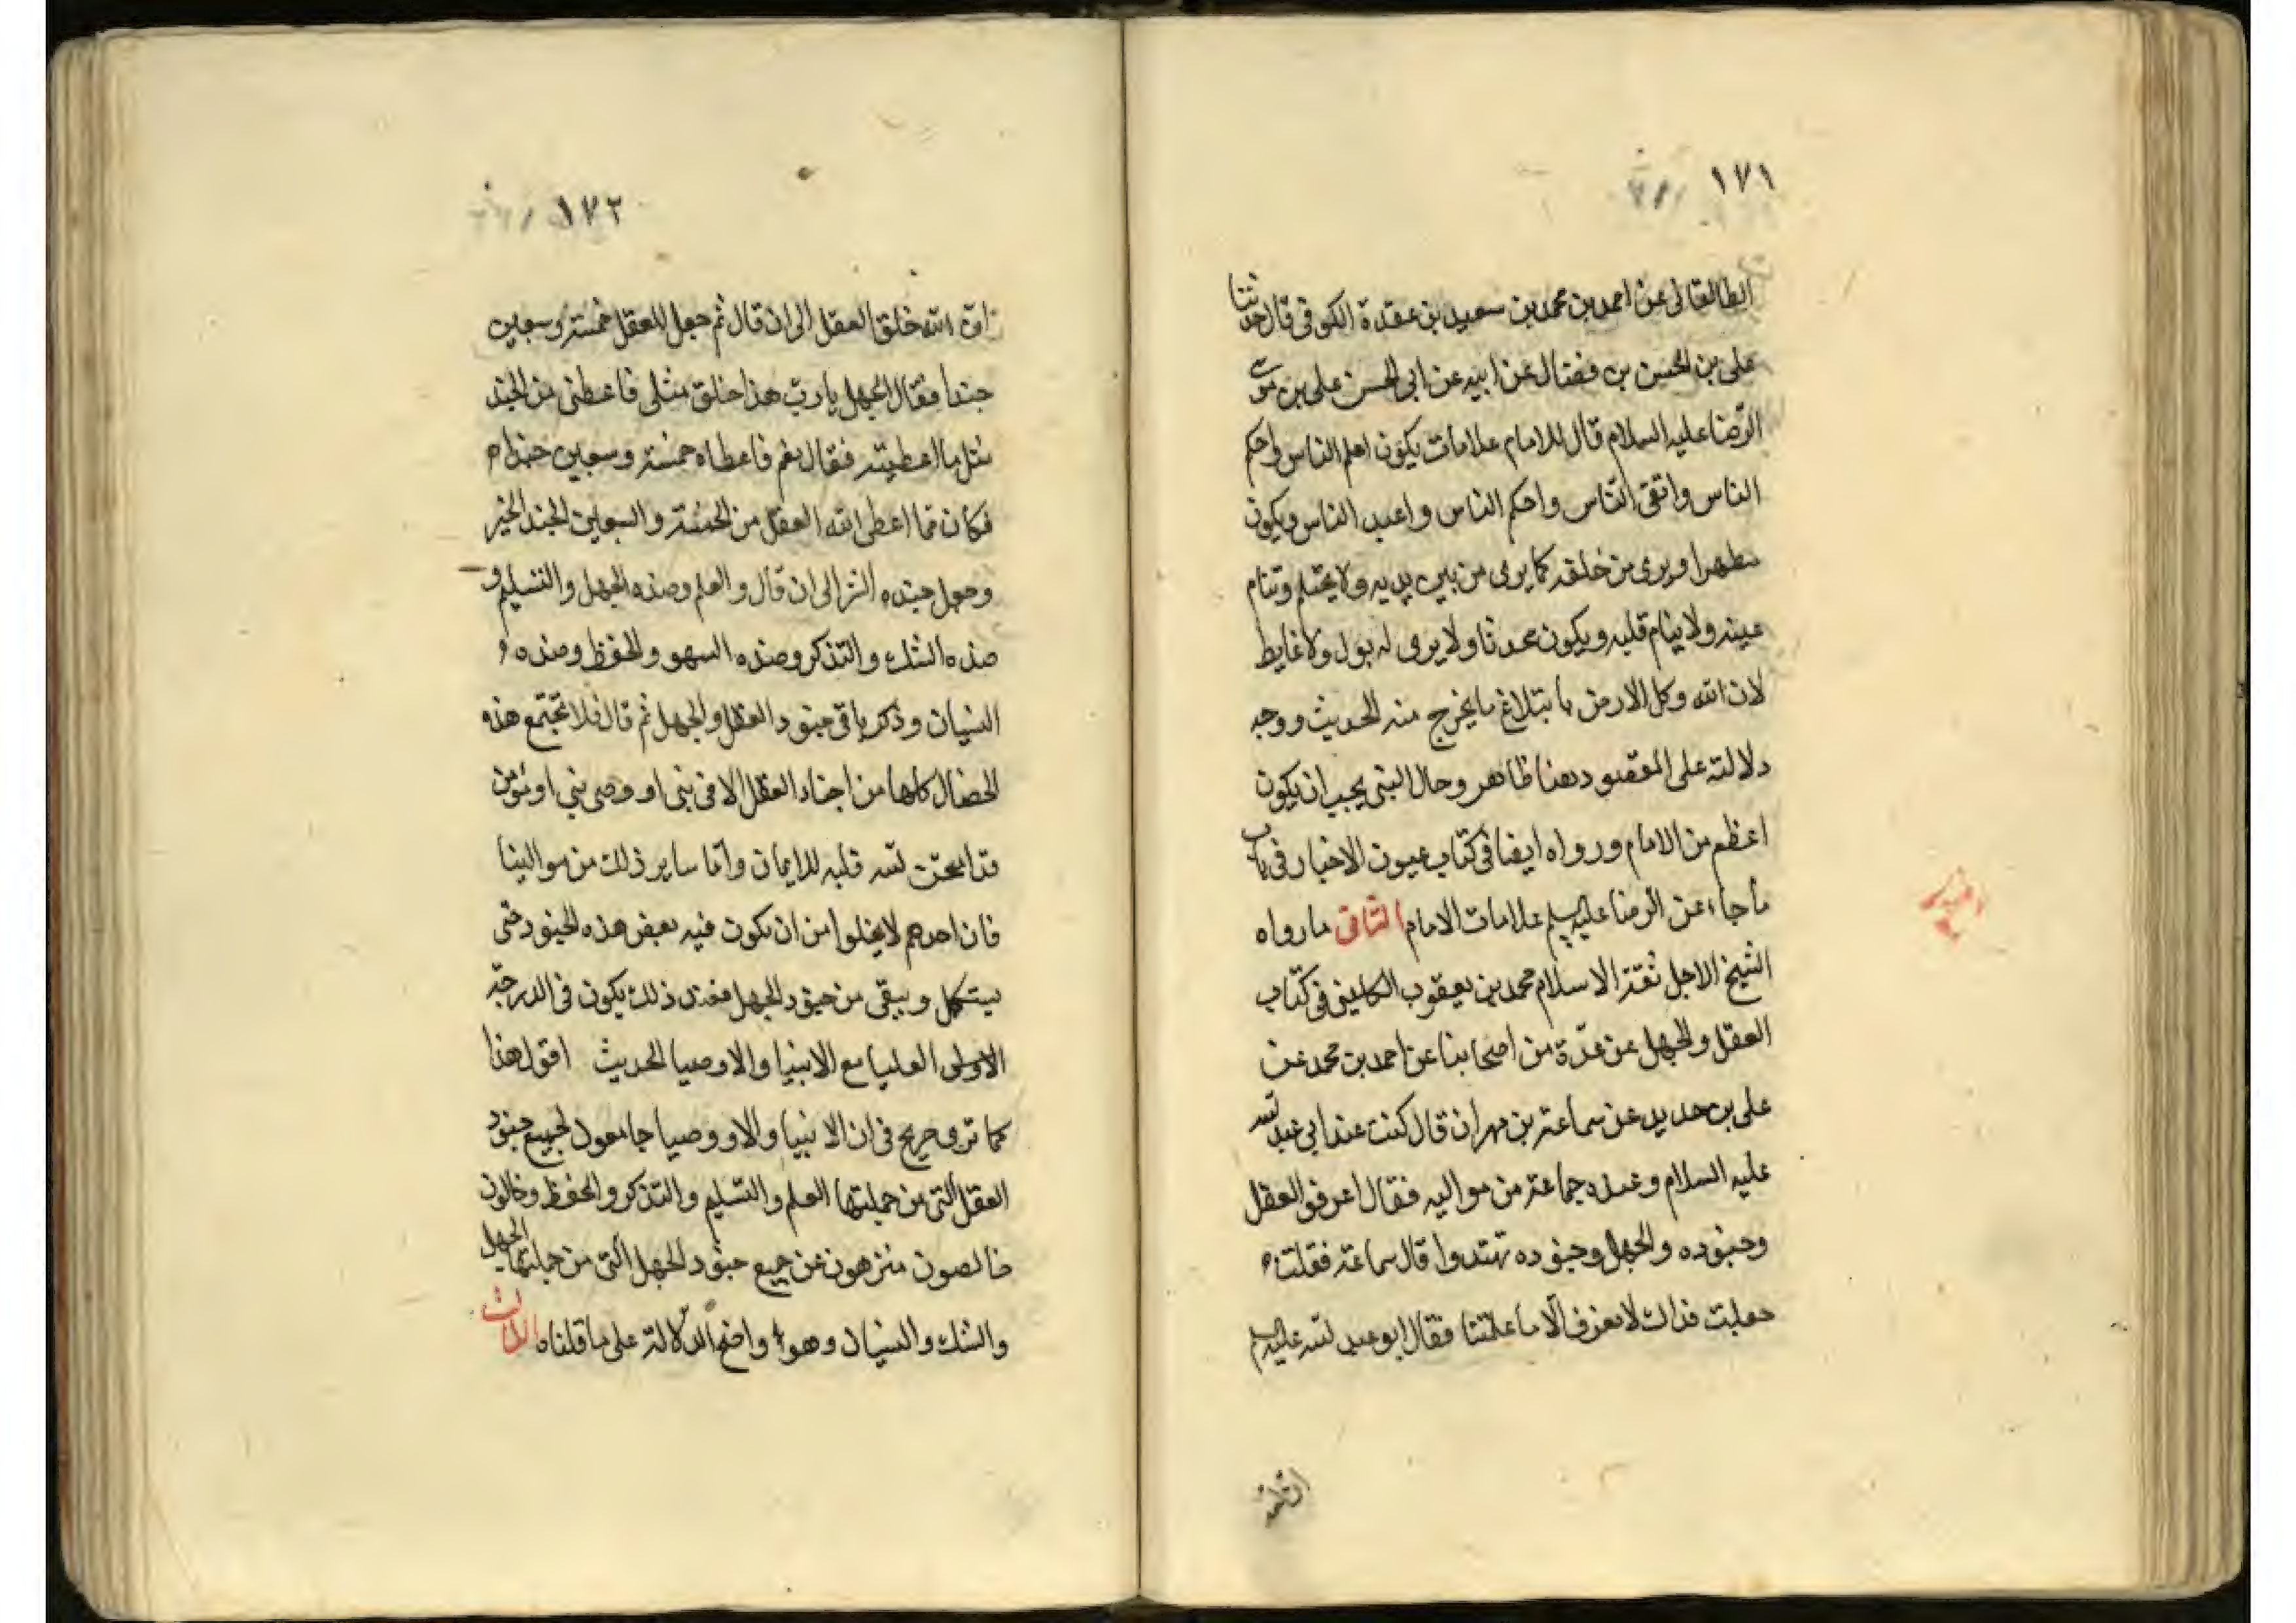 ١٧١
الطالقانى عن احمد بن محمد بن سعيد بن عقدة الكوفى قال حدثنا
على بن الحسن بن فضال عن ابيه عن ابى الحسن على بن موسى
الرضا عليه السلام قال للامام علامات يكون اعلم الناس واحكم
الناس واتقى الناس واحلم الناس واعبد الناس ويكون
مطهرا ويرى من خلفه كما يرى من بين يديه ولا يحتلم وتنام
عينه ولا ينام قلبه ويكون محدثا ولا يرى له بول ولا غايط
لان الله وكل الارض بابتلاع ما يخرج منه الحديث ووجه
دلالته على المقصود هنا ظاهر وحال النبى يجب ان يكون
اعظم من الامام ورواه ايضا فى كتاب عيون الاخبار فى باب
ما جاء عن الرضا عليه السلم علامات الامام الثانى ما رواه
الشيخ الاجل ثقة الاسلام محمد بن يعقوب الكلينى فى كتاب
العقل والجهل عن عدة من اصحابنا عن احمد بن محمد عن
على بن حديد عن سماعة بن مهران قال كنت عند ابى عبد الله
عليه السلام وعنده جماعة من مواليه فقال اعرفوا العقل
وجنوده والجهل وجنوده تهتدوا قال سماعة فقلت
جعلت فداك لا نعرف الا ما علمتنا فقال ابو عبد الله عليه السلم
١٧٢
ان الله خلق العقل الى ان قال ثم جعل للعقل خمسة وسبعين
جندا فقال الجهل يا رب هذا خلق مثلى فاعطنى من الجند
مثل ما اعطيته فقال نعم فاعطاه خمسة وسبعين جندا
فكان مما اعطى الله العقل من الخمسة والسبعين الجند الخير
وجعل جنده الشر الى ان قال والعلم وضده الجهل والتسليم و
ضده الشك والتذكر وضده السهو والحفظ وضده
النسيان وذكر باقى جنود العقل والجهل ثم قال فلا تجتمع هذه
الخصال كلها من اجناد العقل الا فى نبى او وصى نبى او مؤمن
قد امتحن الله قلبه للايمان واما ساير ذلك من موالينا
فان احدهم لا يخلوا من ان يكون فيه بعض هذه الجنود حتى
يستكمل وينقى من جنود الجهل فعند ذلك يكون فى الدرجة
الاولى العليا مع الانبيا والاوصيا الحديث اقول هذا
كما ترى صريح فى ان الانبيا والاووصيا جامعون لجميع جنود
العقل التى من جملتها العلم والتسليم والتذكر والحفظ وخالون
خالصون منزهون عن جميع جنود الجهل التى من جملتها الجهل
والشك والنسيان وهو واضح الدلالة على ما قلناه الثالث